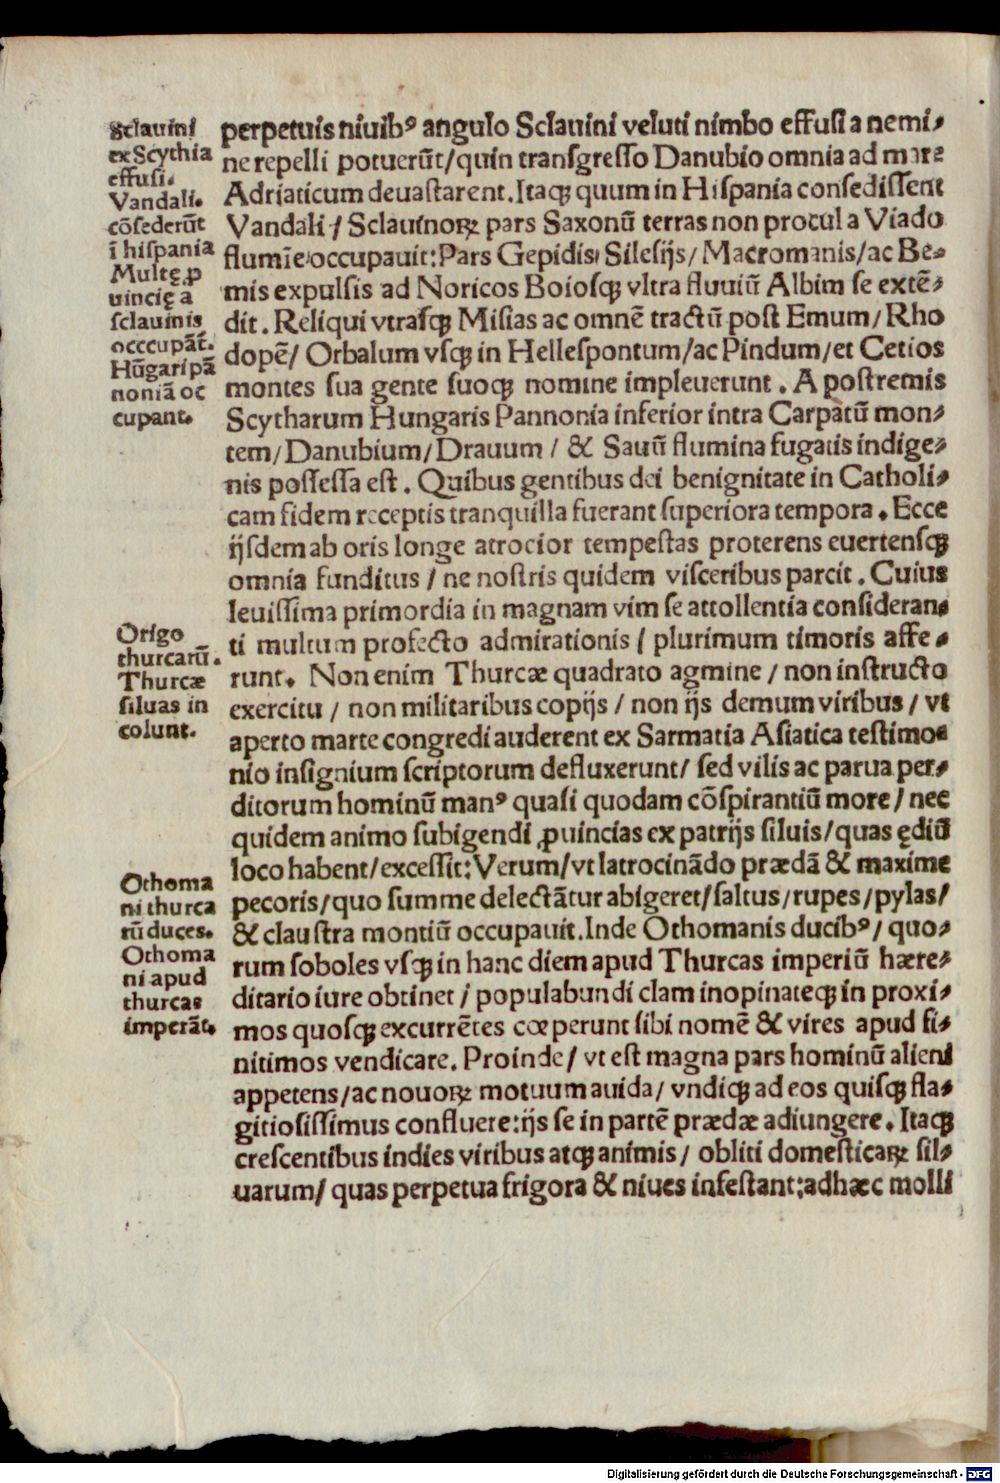 Sclauini
ex Scythia
effusi.
Vandali.
cōsederūt
ī hispania
Multę ꝓ
uincię a
sclauinis
occcupāt.
Hūgari pā
noniā oc
cupant.
Origo
thurcarū.
Thurcæ
siluas in
colunt.
Othoma
ni thurca
rū duces.
Othoma
ni apud
thurcas
imperāt.
perpetuis niuibꝰ angulo Sclauini veluti nimbo effusi a nemi-
ne repelli potuerūt/quin transgresso Danubio omnia ad mare
Adriaticum deuastarent. Itaqꝫ quum in Hispania consedissent
Vandali / Sclauinoꝝ pars Saxonū terras non procul a Viado
flumīe occupauit: Pars Gepidis/ Silesijs/ Macromanis/ac Be-
mis expulsis ad Noricos Boiosqꝫ vltra fluuiū Albim se extē-
dit. Reliqui vtrasqꝫ Misias ac omnē tractū post Emum/ Rho
dopē/ Orbalum vsqꝫ in Hellespontum/ac Pindum/et Cetios
montes sua gente suoqꝫ nomine impleuerunt. A postremis
Scytharum Hungaris Pannonia inferior intra Carpatū mon-
tem/Danubium/Drauum / & Sauū flumina fugatis indige-
nis possessa est. Quibus gentibus dei benignitate in Catholi-
cam fidem receptis tranquilla fuerant superiora tempora. Ecce
ijsdem ab oris longe atrocior tempestas proterens euertensqꝫ
omnia funditus / ne nostris quidem visceribus parcit. Cuius
leuissima primordia in magnam vim se attollentia consideran-
ti multum profecto admirationis / plurimum timoris affe-
runt. Non enim Thurcæ quadrato agmine / non instructo
exercitu / non militaribus copijs / non ijs demum viribus / vt
aperto marte congredi auderent ex Sarmatia Asiatica testimo-
nio insignium scriptorum defluxerunt/ sed vilis ac parua per-
ditorum hominū manꝰ quasi quodam cōspirantiū more / nec
quidem animo subigendi ꝓuincias ex patrijs siluis/quas ędiū
loco habent/excessit: Verum/vt latrocinādo prædā & maxime
pecoris/quo summe delectātur abigeret/saltus/rupes/pylas/
& claustra montiū occupauit. Inde Othomanis ducibꝰ/ quo-
rum soboles vsqꝫ in hanc diem apud Thurcas imperiū hære-
ditario iure obtinet / populabundi clam inopinateqꝫ in proxi-
mos quosqꝫ excurrētes cœperunt sibi nomē & vires apud fi-
nitimos vendicare. Proinde/ vt est magna pars hominū alieni
appetens/ac nouoꝝ motuum auida/ vndiqꝫ ad eos quisqꝫ fla-
gitiosissimus confluere: ijs se in partē prædæ adiungere. Itaqꝫ
crescentibus indies viribus atqꝫ animis/ obliti domesticaꝝ sil-
uarum/ quas perpetua frigora & niues infestant: adhæc molli
Digitalisierung gefördert durch die Deutsche Forschungsgemeinschaft - DFG